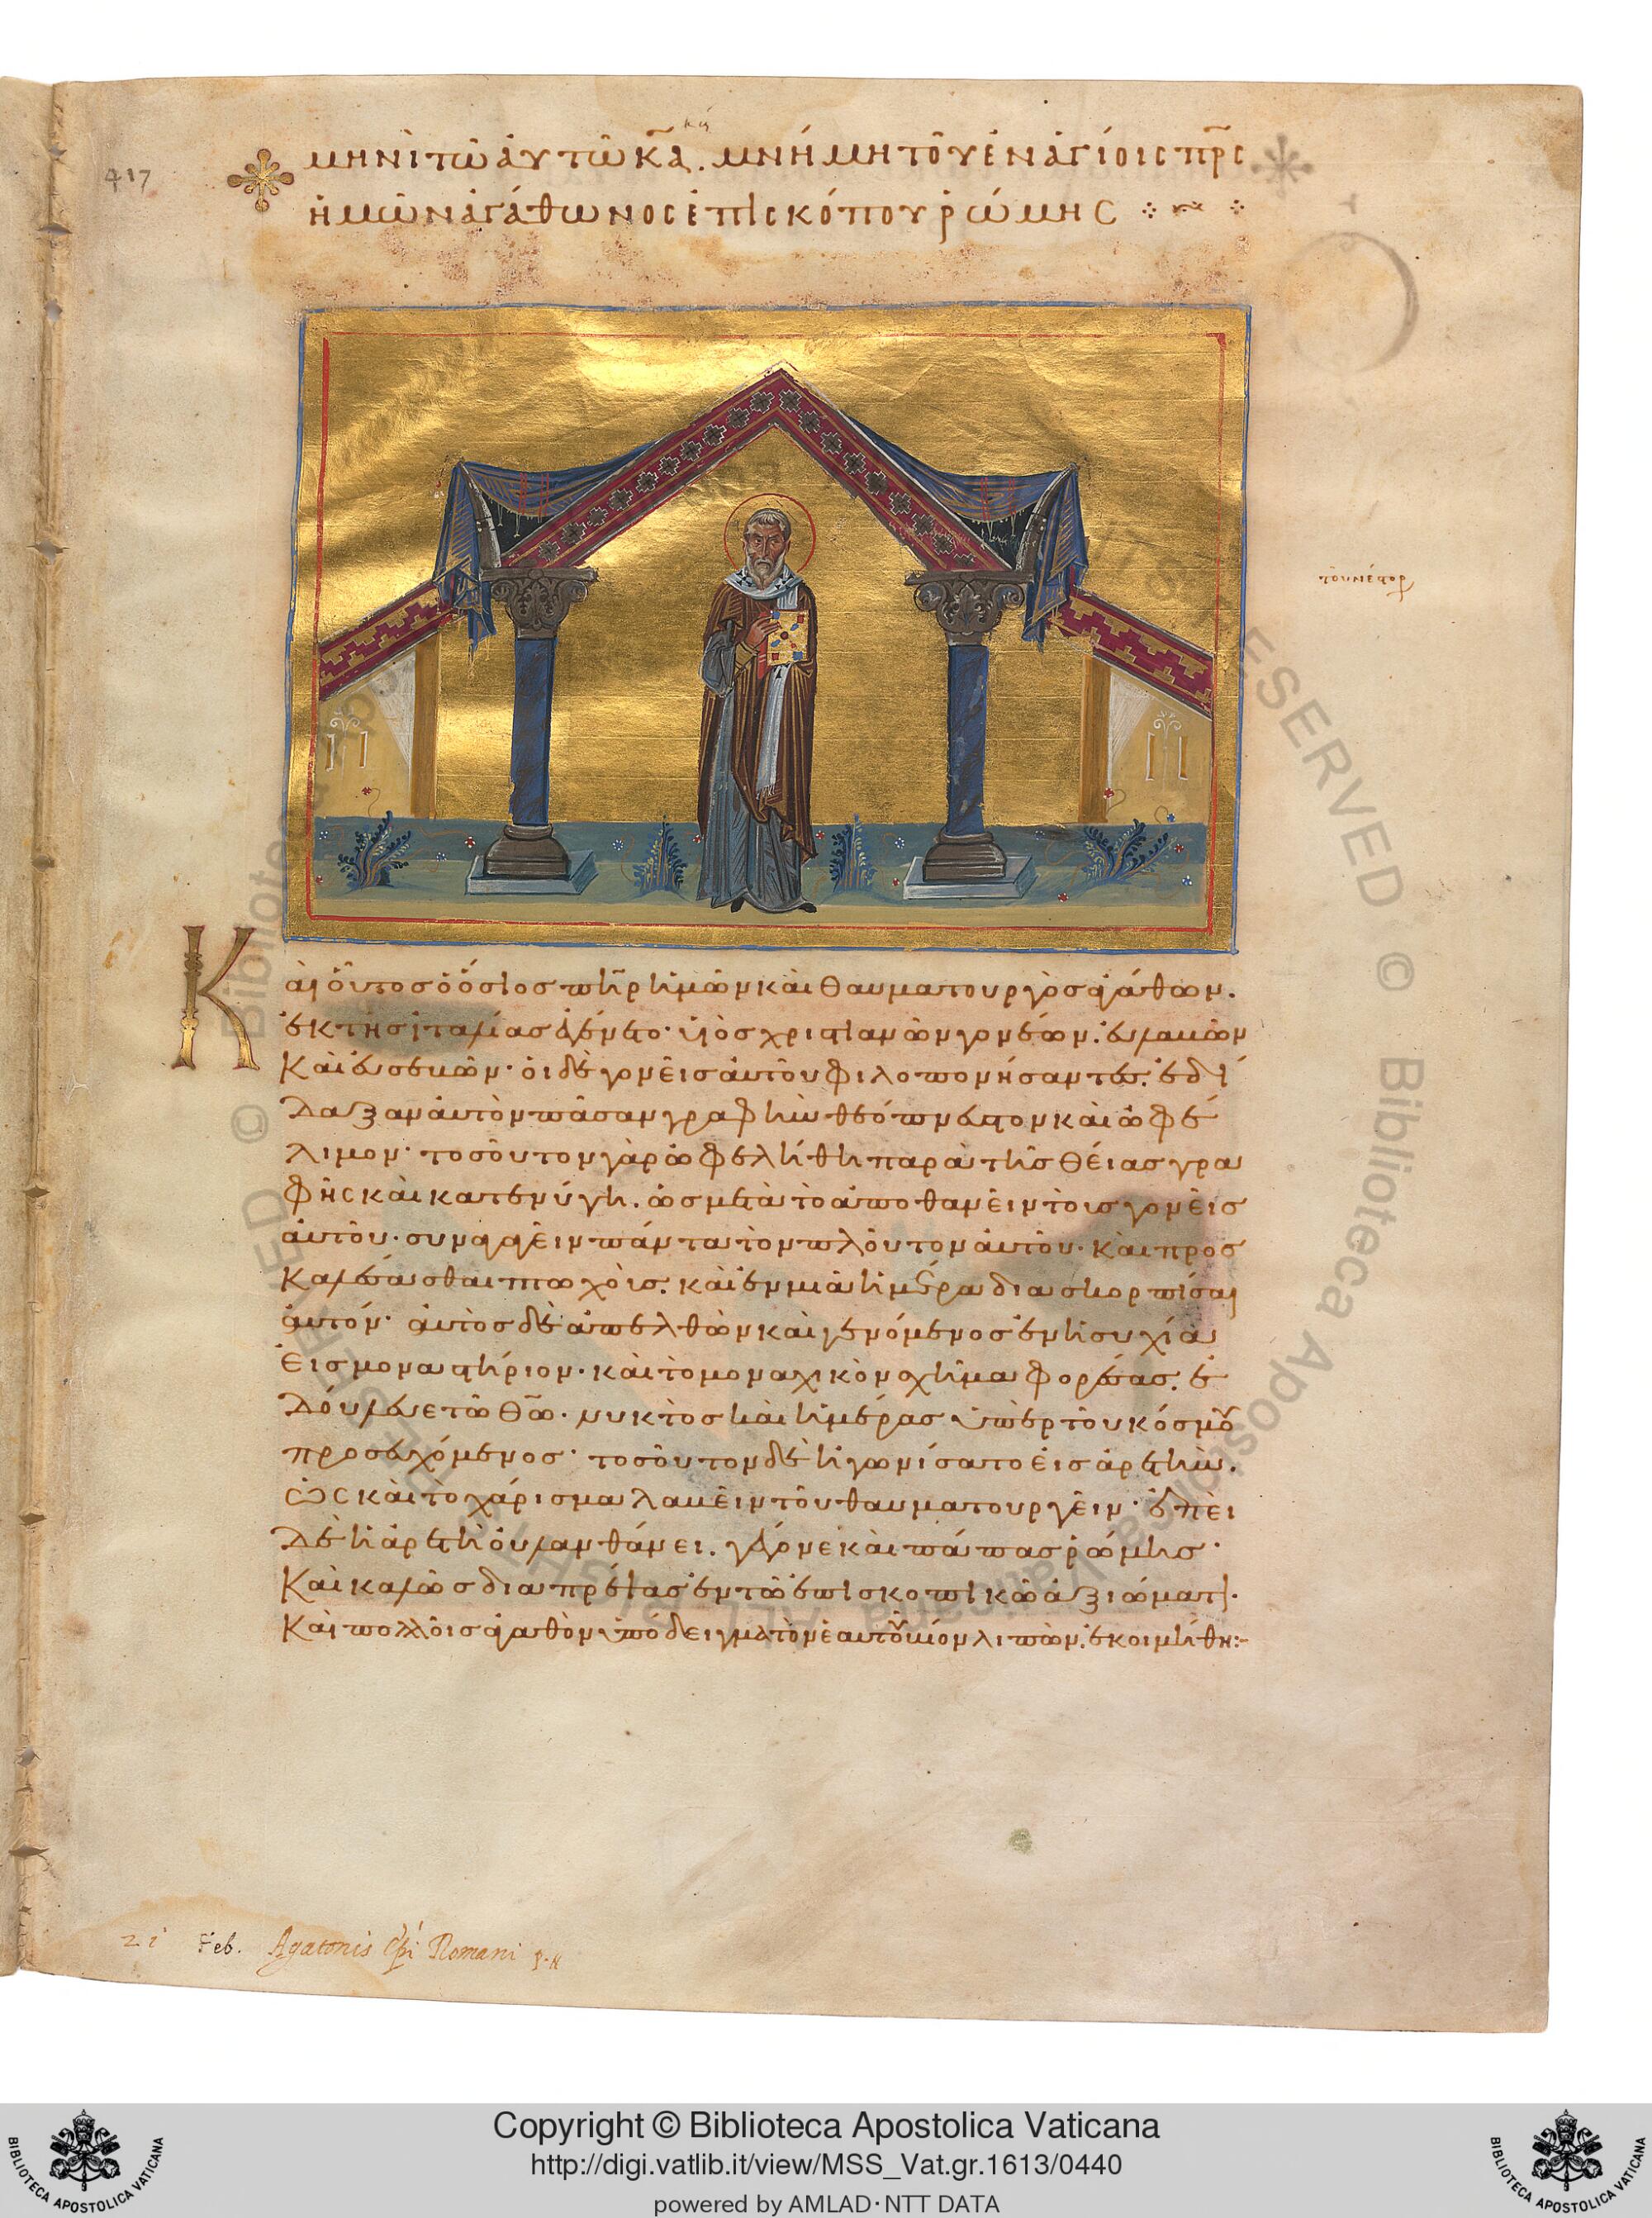 κῃ
417
μηνὶ τῶ ἀυτῶ κα. μνήμη τοῦ ἐν ἁγίοις πρς
ἡμῶν ἀγάθωνος ἐπισκόπου ῥώμης
Και οὗτος ὁ ὅσιος πηρ ἡμῶν καὶ θαυματουργὸς ἀγάθων.
ἐκ τῆς ἰταλίας ἐγένετο. υἱὸς χριστιανῶν γονέων. ἐυλαβῶν
καὶ ἐυσεβῶν. ὁι δὲ γονεῖς ἀυτοῦ φιλοπονήσαντες. ἐδί
δαξαν ἀυτὸν πᾶσαν γραφὴν θεόπνευστον καὶ ὠφέ
λιμον. τοσοῦτον γὰρ ὠφελήθη παρὰ τῆς θείας γρα
φῆς καὶ κατενύγη. ὡς μετὰ τὸ ἀποθανεῖν τοὺς γονεῖς
ἀυτοῦ. συναγαγεῖν πάντα τὸν πλοῦτον ἀυτοῦ. καὶ προσ
καλέσασθαι πτωχοὺς. καὶ ἐν μιᾶ ἡμέρα διασκορπίσαι
ἀυτόν. ἀυτὸς δὲ ἀπελθὼν καὶ γενόμενος ἐν ἡσυχία
ἐις μοναστήριον. καὶ τὸ μοναχικὸν σχῆμα φορέσας. ἐ
δούλευε τῶ θῶ. νυκτὸς καὶ ἡμέρας ὑπὲρ τοῦ κόσμου
προσευχόμενος. τοσοῦτον δὲ ἠγωνίσατο ἐις ἀρετὴν.
ὡς καὶ τὸ χάρισμα λαβεῖν τοῦ θαυματουργεῖν. ἐπεὶ
δὲ ἡ ἀρετὴ ὀυ λανθάνει. γέγονε καὶ πάπας ῥώμης.
καὶ καλῶς διαπρέψας ἐν τῶ ἐπισκοπικῶ ἀξιώματι.
καὶ πολλοῖς ἀγαθὸν ὑπόδειγμα τὸν ἑαυτοῦ βίον λιπὼν. ἐκοιμήθη:-
21 Feb. Agatonis Epi Romani
BIBLIOTECA APOSTOLICA VATICANA
Copyright © Biblioteca Apostolica Vaticana
http://digi.vatlib.it/view/MSS_Vat.gr.1613/0440
powered by AMLAD·NTT DATA
BIBLIOTECA APOSTOLICA VATICANA